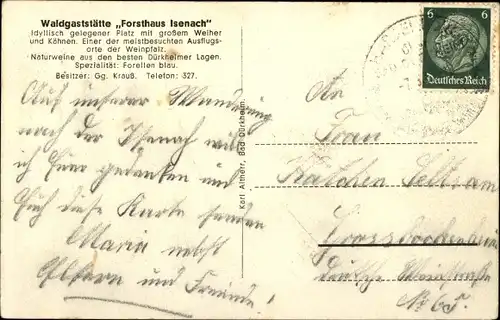 Waldgaststätte „Forsthaus Isenach"
Idyllisch gelegener Platz mit großem Weiher
und Kähnen. Einer der meistbesuchten Ausflugs-
orte der Weinpfalz.
Naturweine aus den besten Dürkheimer Lagen.
Spezialität: Forellen blau.
Besitzer: Gg. Krauß. Telefon: 327.
Auf unserer Wanderung
nach der Isenach will
ich Euer gedenken und
Euch diese Karte senden
Maria nebst
Eltern und Freunde!
Karl Altherr, Bad Dürkheim.
6 6
Deutsches Reich
An
Frau
Kätchen
Deutsche
No 65.